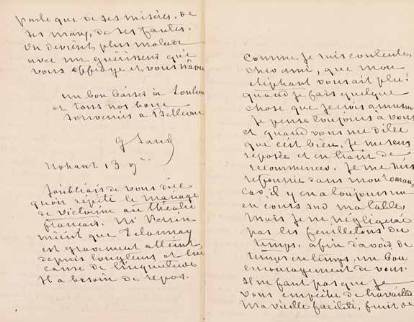 parle que de ses misères, de
ses maux, de ses fautes.
On devient plus malade
avec un guérisseur qui
vous afflige et vous
un bon baiser à
et tous nos bons
souvenirs à
G Sand
Nohant 13
J'oubliais de vous dire
qu'on répète le mariage
de Victorine au théâtre
français.
que Delaunay
est gravement atteint
depuis longtemps et
cause de l'inquiétude
Il a besoin de repos.
Comme je suis contente,
cher ami, que mon
éléphant vous ait plu!
quand je fais quelque
chose que je crois amusant
je pense toujours à vous
et quand vous me dites
que c'est bien, je me sens
reposée et en train de
recommencer. Je me suis
dans mon roman,
car il y en a toujours un
en cours sur ma table.
Mais je ne négligerai
pas les feuilletons du
temps, afin d'avoir de
temps en temps, un bon
encouragement de vous.
Il ne faut pas que je
vous empêche de travailler
Ma vieille facilité, fruit de